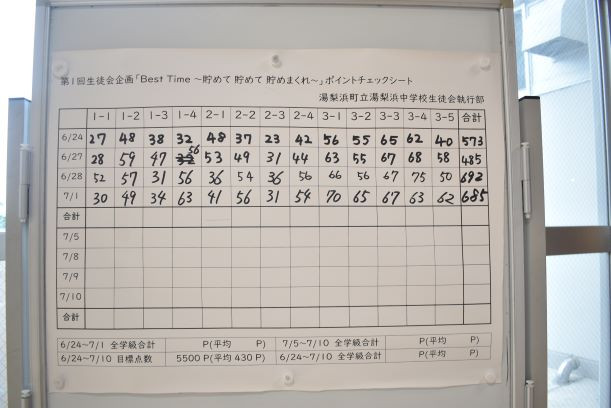 第1回生徒会企画「Best Time ～貯めて 貯めて 貯めまくれ～」ポイントチェックシート
湯梨浜町立湯梨浜中学校生徒会執行部
1-1 1-2 1-3 1-4 2-1 2-2 2-3 2-4 3-1 3-2 3-3 3-4 3-5 合計
6/24 27 48 38 32 48 37 23 42 56 55 65 62 40 573
6/27 28 59 47 56 53 49 31 44 63 55 67 68 58 485
6/28 52 57 31 56 36 54 36 56 66 56 67 75 50 692
7/1 30 49 34 63 41 56 31 54 70 65 67 63 62 685
合計
7/5
7/8
7/9
7/10
合計
6/24～7/1 全学級合計 P(平均 P) 7/5～7/10 全学級合計 P(平均 P)
6/24～7/10 目標点数 5500 P(平均 430 P) 6/24～7/10 全学級合計 P(平均 P)